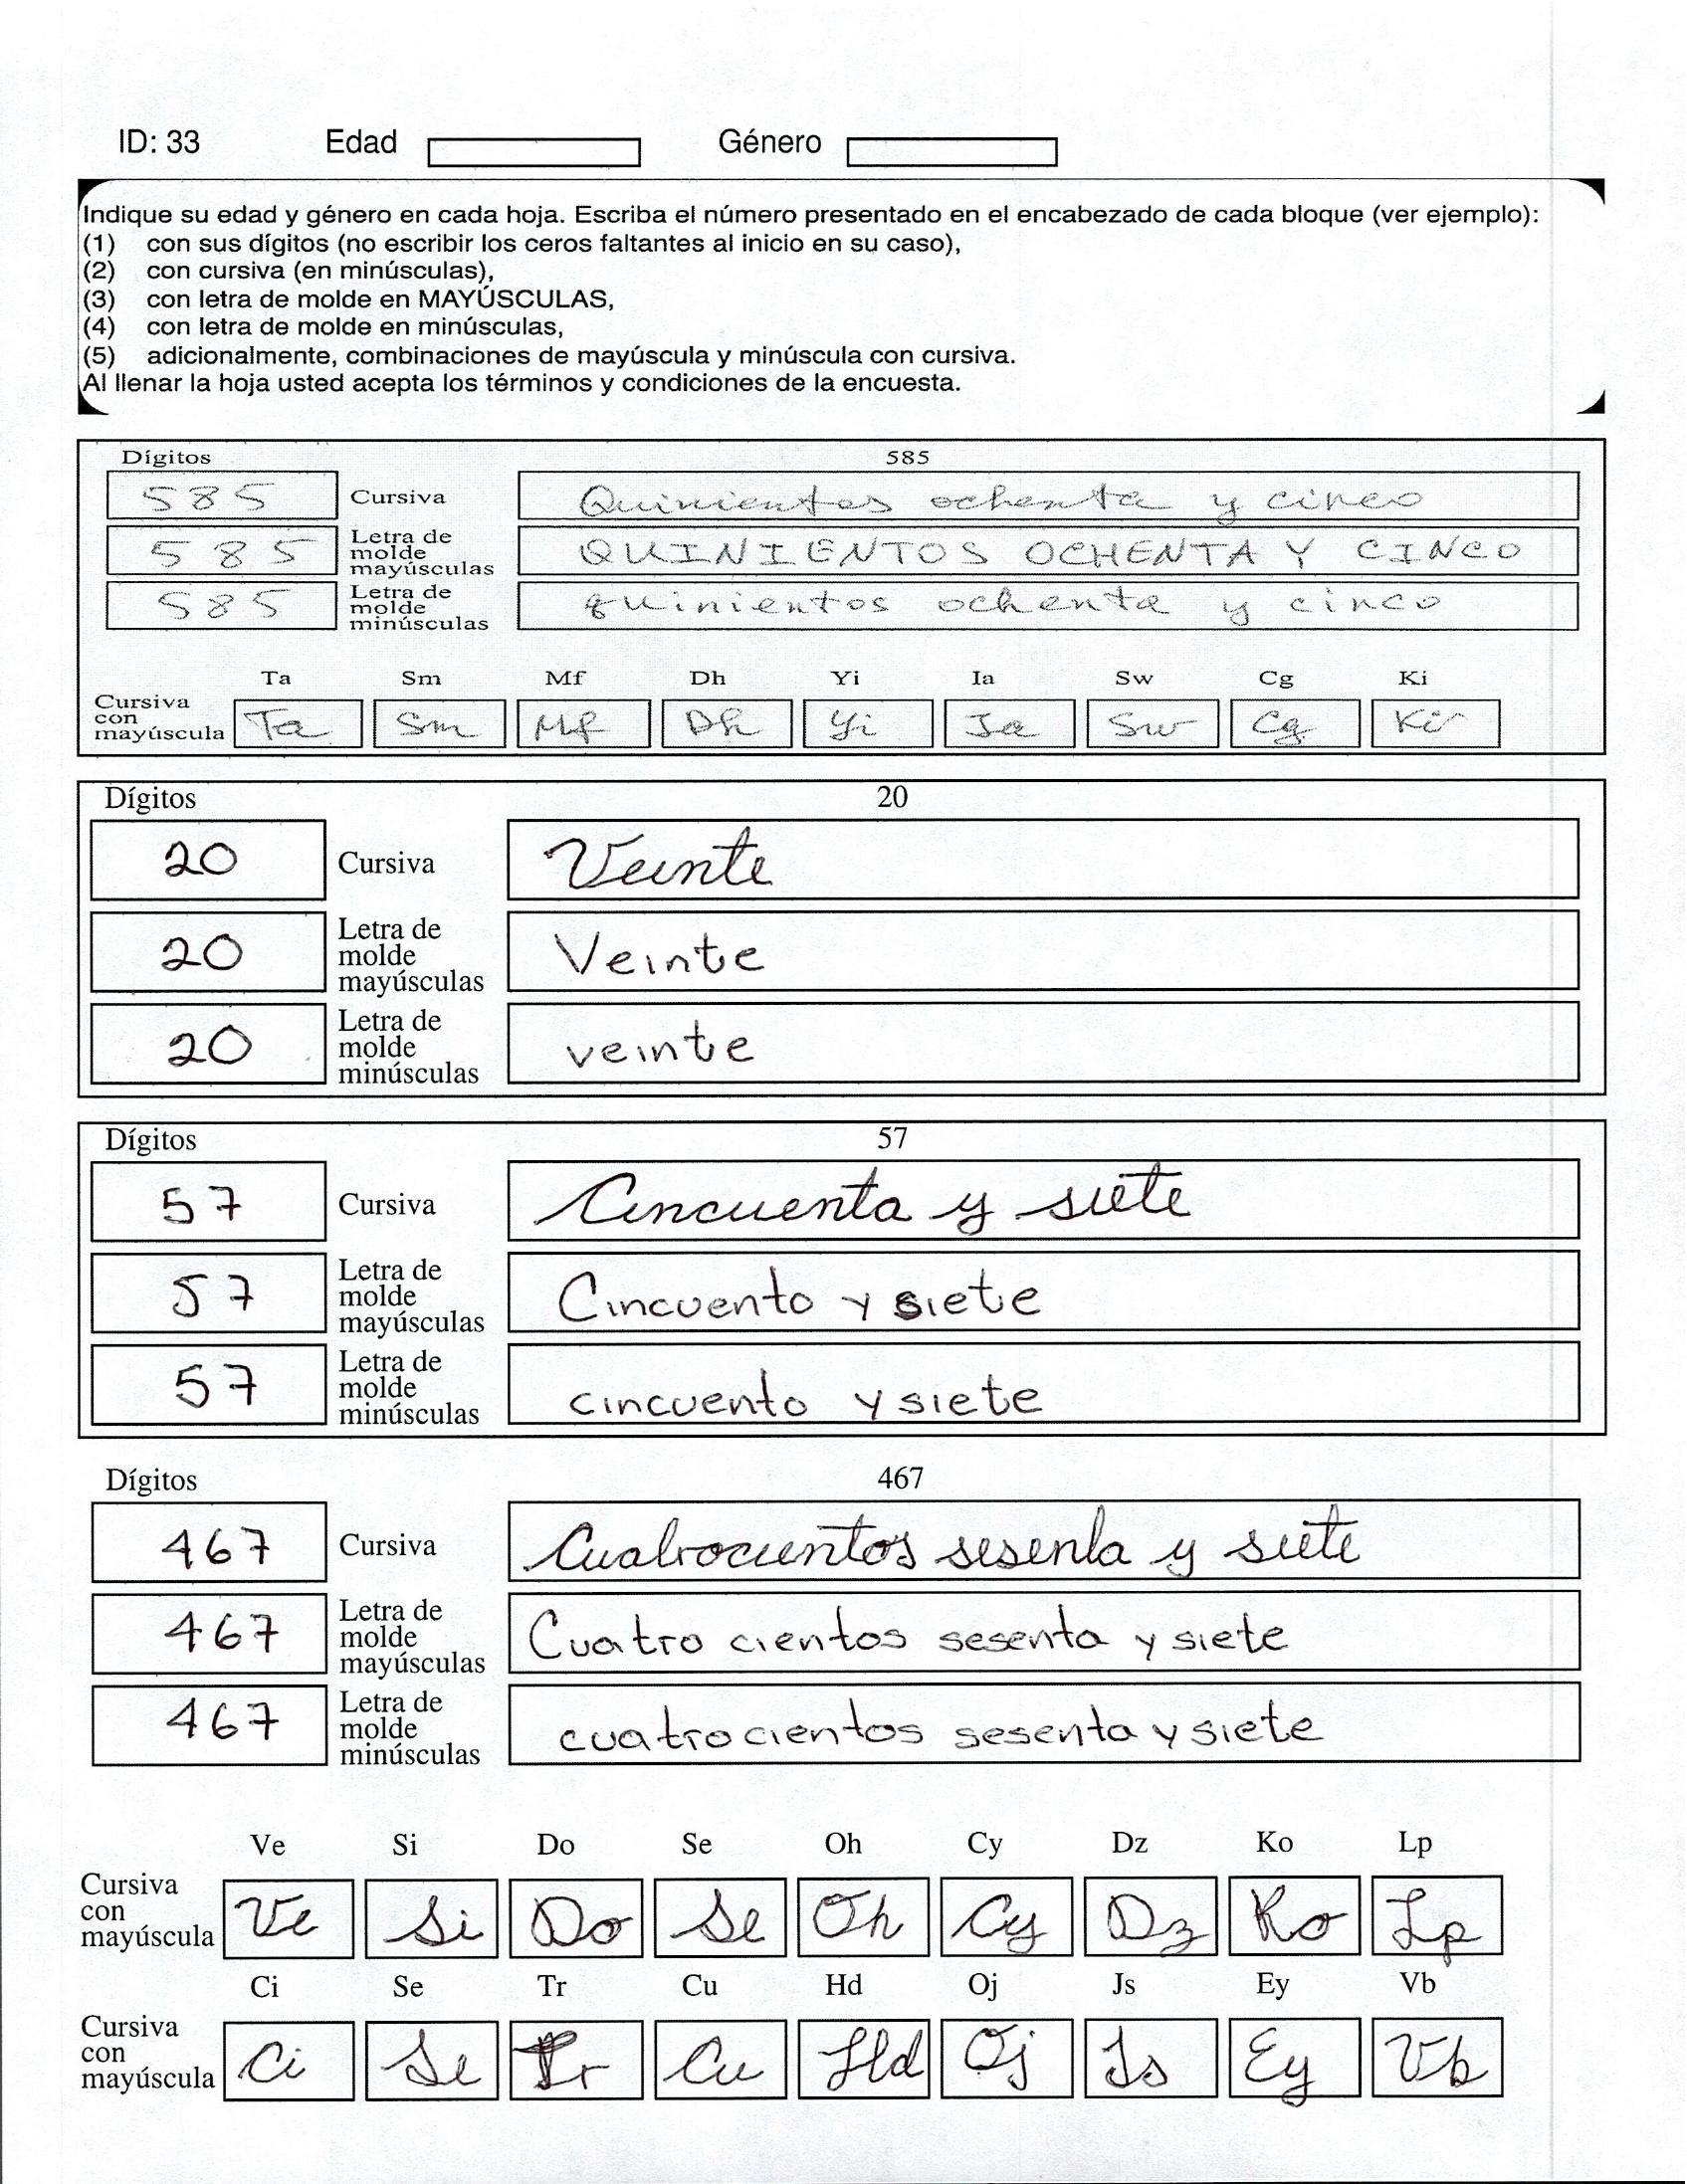 ID: 33 Edad Género
Indique su edad y género en cada hoja. Escriba el número presentado en el encabezado de cada bloque (ver ejemplo):
(1) con sus dígitos (no escribir los ceros faltantes al inicio en su caso),
(2) con cursiva (en minúsculas),
(3) con letra de molde en MAYÚSCULAS,
(4) con letra de molde en minúsculas,
(5) adicionalmente, combinaciones de mayúscula y minúscula con cursiva.
Al llenar la hoja usted acepta los términos y condiciones de la encuesta.
Dígitos 585
585 Cursiva Quinientos ochenta y cinco
585 Letra de molde mayúsculas QUINIENTOS OCHENTA Y CINCO
585 Letra de molde minúsculas quinientos ochenta y cinco
Ta Sm Mf Dh Yi Ia Sw Cg Ki
Cursiva con mayúscula Ta Sm Mf Dh Yi Ia Sw Cg Ki
Dígitos 20
20 Cursiva Veinte
20 Letra de molde mayúsculas Veinte
20 Letra de molde minúsculas veinte
Dígitos 57
57 Cursiva Cincuenta y siete
57 Letra de molde mayúsculas Cincuenta y siete
57 Letra de molde minúsculas cincuenta y siete
Dígitos 467
467 Cursiva Cuatrocientos sesenta y siete
467 Letra de molde mayúsculas Cuatro cientos sesenta y siete
467 Letra de molde minúsculas cuatrocientos sesenta y siete
Ve Si Do Se Oh Cy Dz Ko Lp
Cursiva con mayúscula Ve Si Do Se Oh Cy Dz Ko Lp
Ci Se Tr Cu Hd Oj Js Ey Vb
Cursiva con mayúscula Ci Se Tr Cu Hd Oj Js Ey Vb